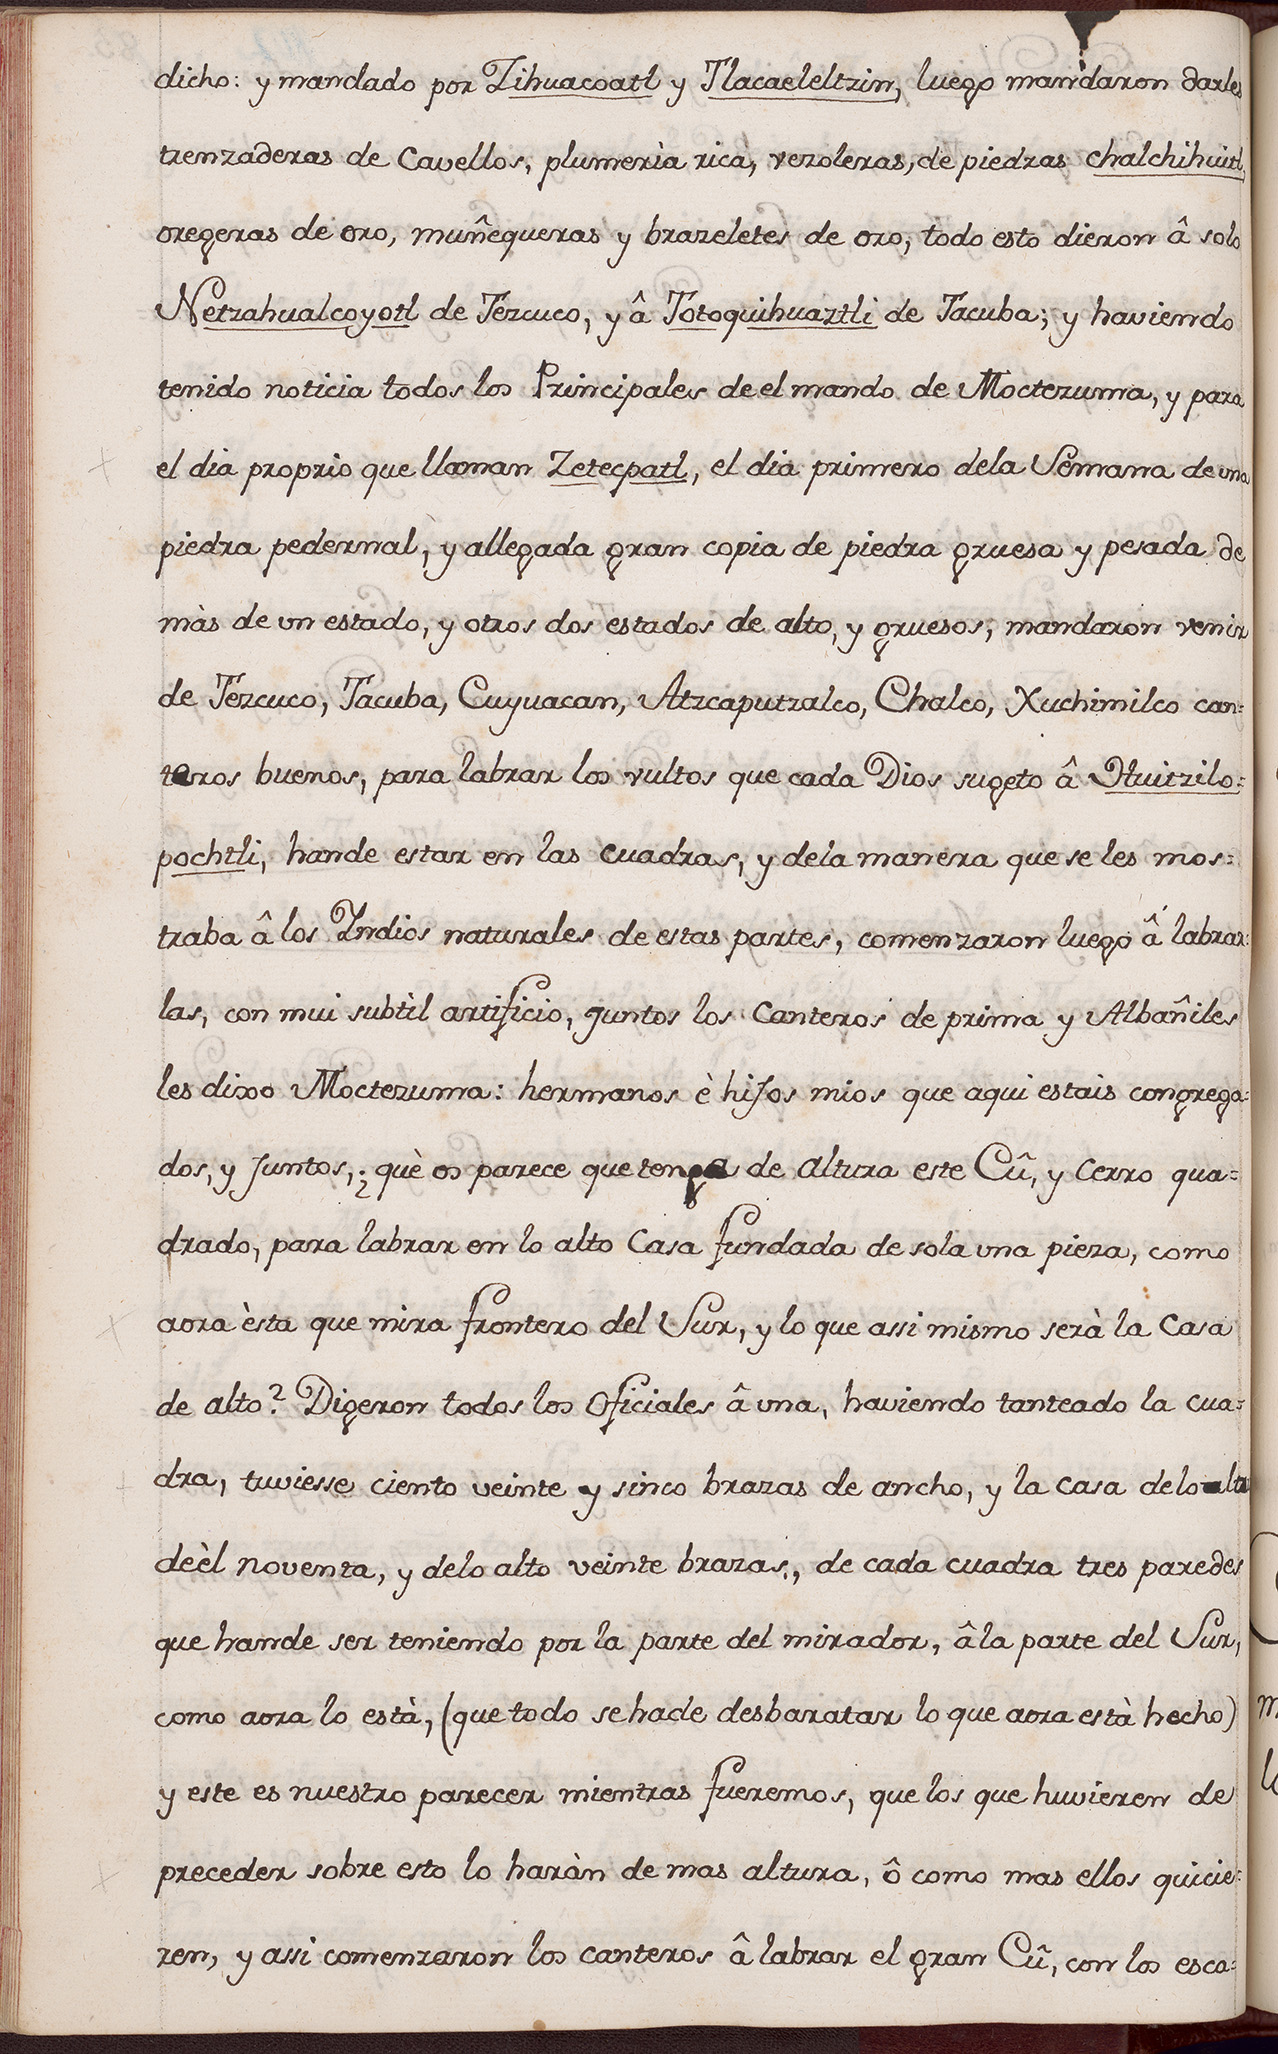 dicho: y mandado por Zihuacoatl y Tlacaeleltzin, luego mandaron darles
trenzaderas de Cavellos, plumerìa rica, vezoleras, de piedras chalchihuitl,
oregeras de oro, muñequeras y brazeletes de oro, todo esto dieron â solo
Netzahualcoyotl de Tezcuco, y â Totoquihuaztli de Tacuba; y haviendo
tenido noticia todos los Principales de el mando de Moctezuma, y para
el dia proprio que llaman Zetecpatl, el dia primero dela Semana de una
piedra pedernal, y allegada gran copia de piedra gruesa y pesada de
màs de un estado, y otros dos estados de alto, y gruesos, mandaron venir
de Tezcuco, Tacuba, Cuyuacan, Atzcaputzalco, Chalco, Xuchimilco can=
teros buenos, para labrar los vultos que cada Dios sugeto â Huitzilo=
pochtli, hande estar en las cuadras, y dela manera que se les mos=
traba â los Yndios naturales de estas partes, comenzaron luego â labrar=
las, con mui subtìl artificio, juntos los Canteros de prima y Albañiles
les dixo Moctezuma: hermanos è hijos mios que aqui estais congrega=
dos, y juntos, ¿què os parece que tenga de altura este Cû, y Cerro qua=
drado, para labrar en lo alto Casa fundada de sola una pieza, como
aora èsta que mira frontero del Sur, y lo que assi mismo serà la Casa
de alto? Digeron todos los Oficiales â una, haviendo tanteado la cua=
dra, tuviesse ciento veinte y sinco brazas de ancho, y la casa delo alto
deèl noventa, y delo alto veinte brazas, de cada cuadra tres paredes
que hande ser teniendo por la parte del mirador, â la parte del Sur,
como aora lo està, (que todo se hade desbaratar lo que aora està hecho)
y este es nuestro parecer mientras fueremos, que los que huvieren de
preceder sobre esto lo haràn de mas altura, ô como mas ellos quicie=
ren, y assi comenzaron los canteros â labrar el gran Cû, con los esca=